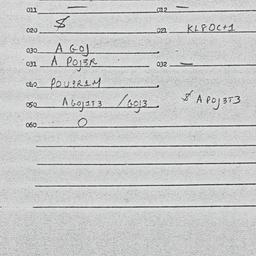 011 — 012 —
020 $ 021 KLPOC+1
030 A GOJ
031 A POJ3R 032 —
040 POU3R1M
050 AGOJ1T3 / GOJ3 $ APOJ3T3
060 O